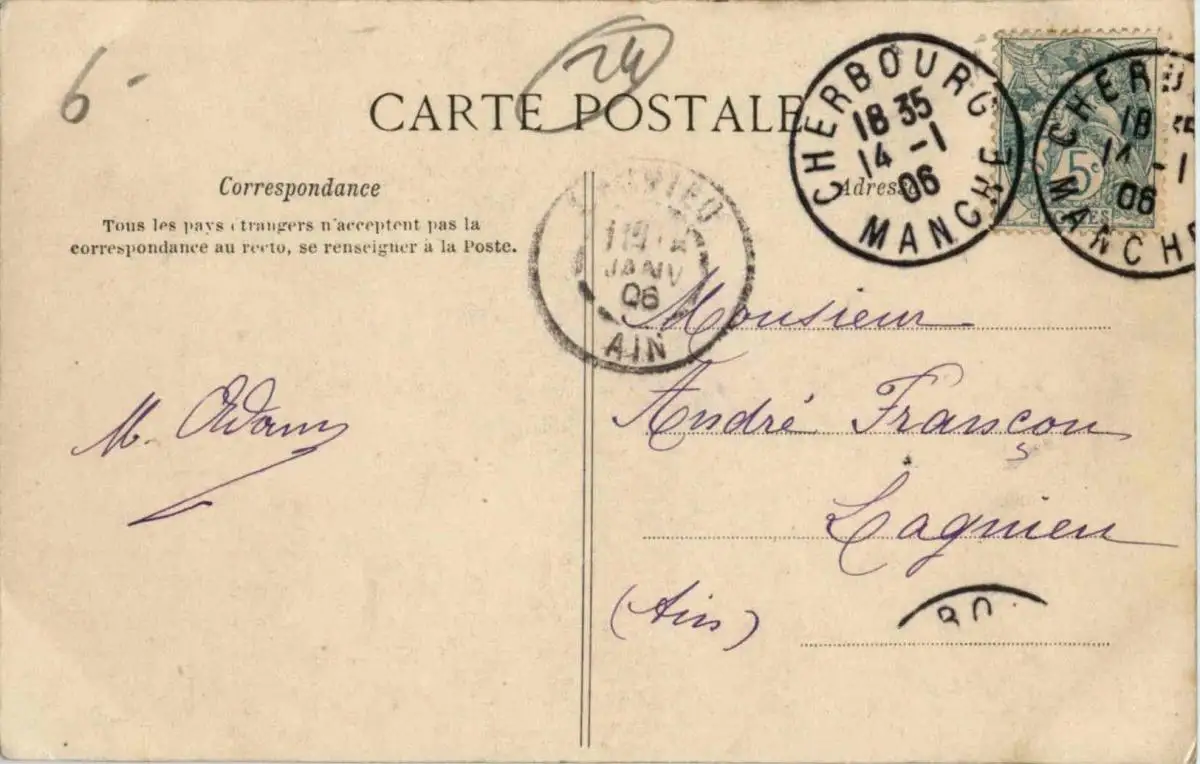 6-
24
CARTE POSTALE
CHERBOURG
18 35
14 -1
06
MANCHE
CHERB
18 35
14 -1
06
MANCHE
5c
Correspondance
Tous les pays étrangers n'acceptent pas la
correspondance au recto, se renseigner à la Poste.
Adresse
JANV
06
AIN
Monsieur
André Françon
Lagnieu
(Ain)
M. Adam